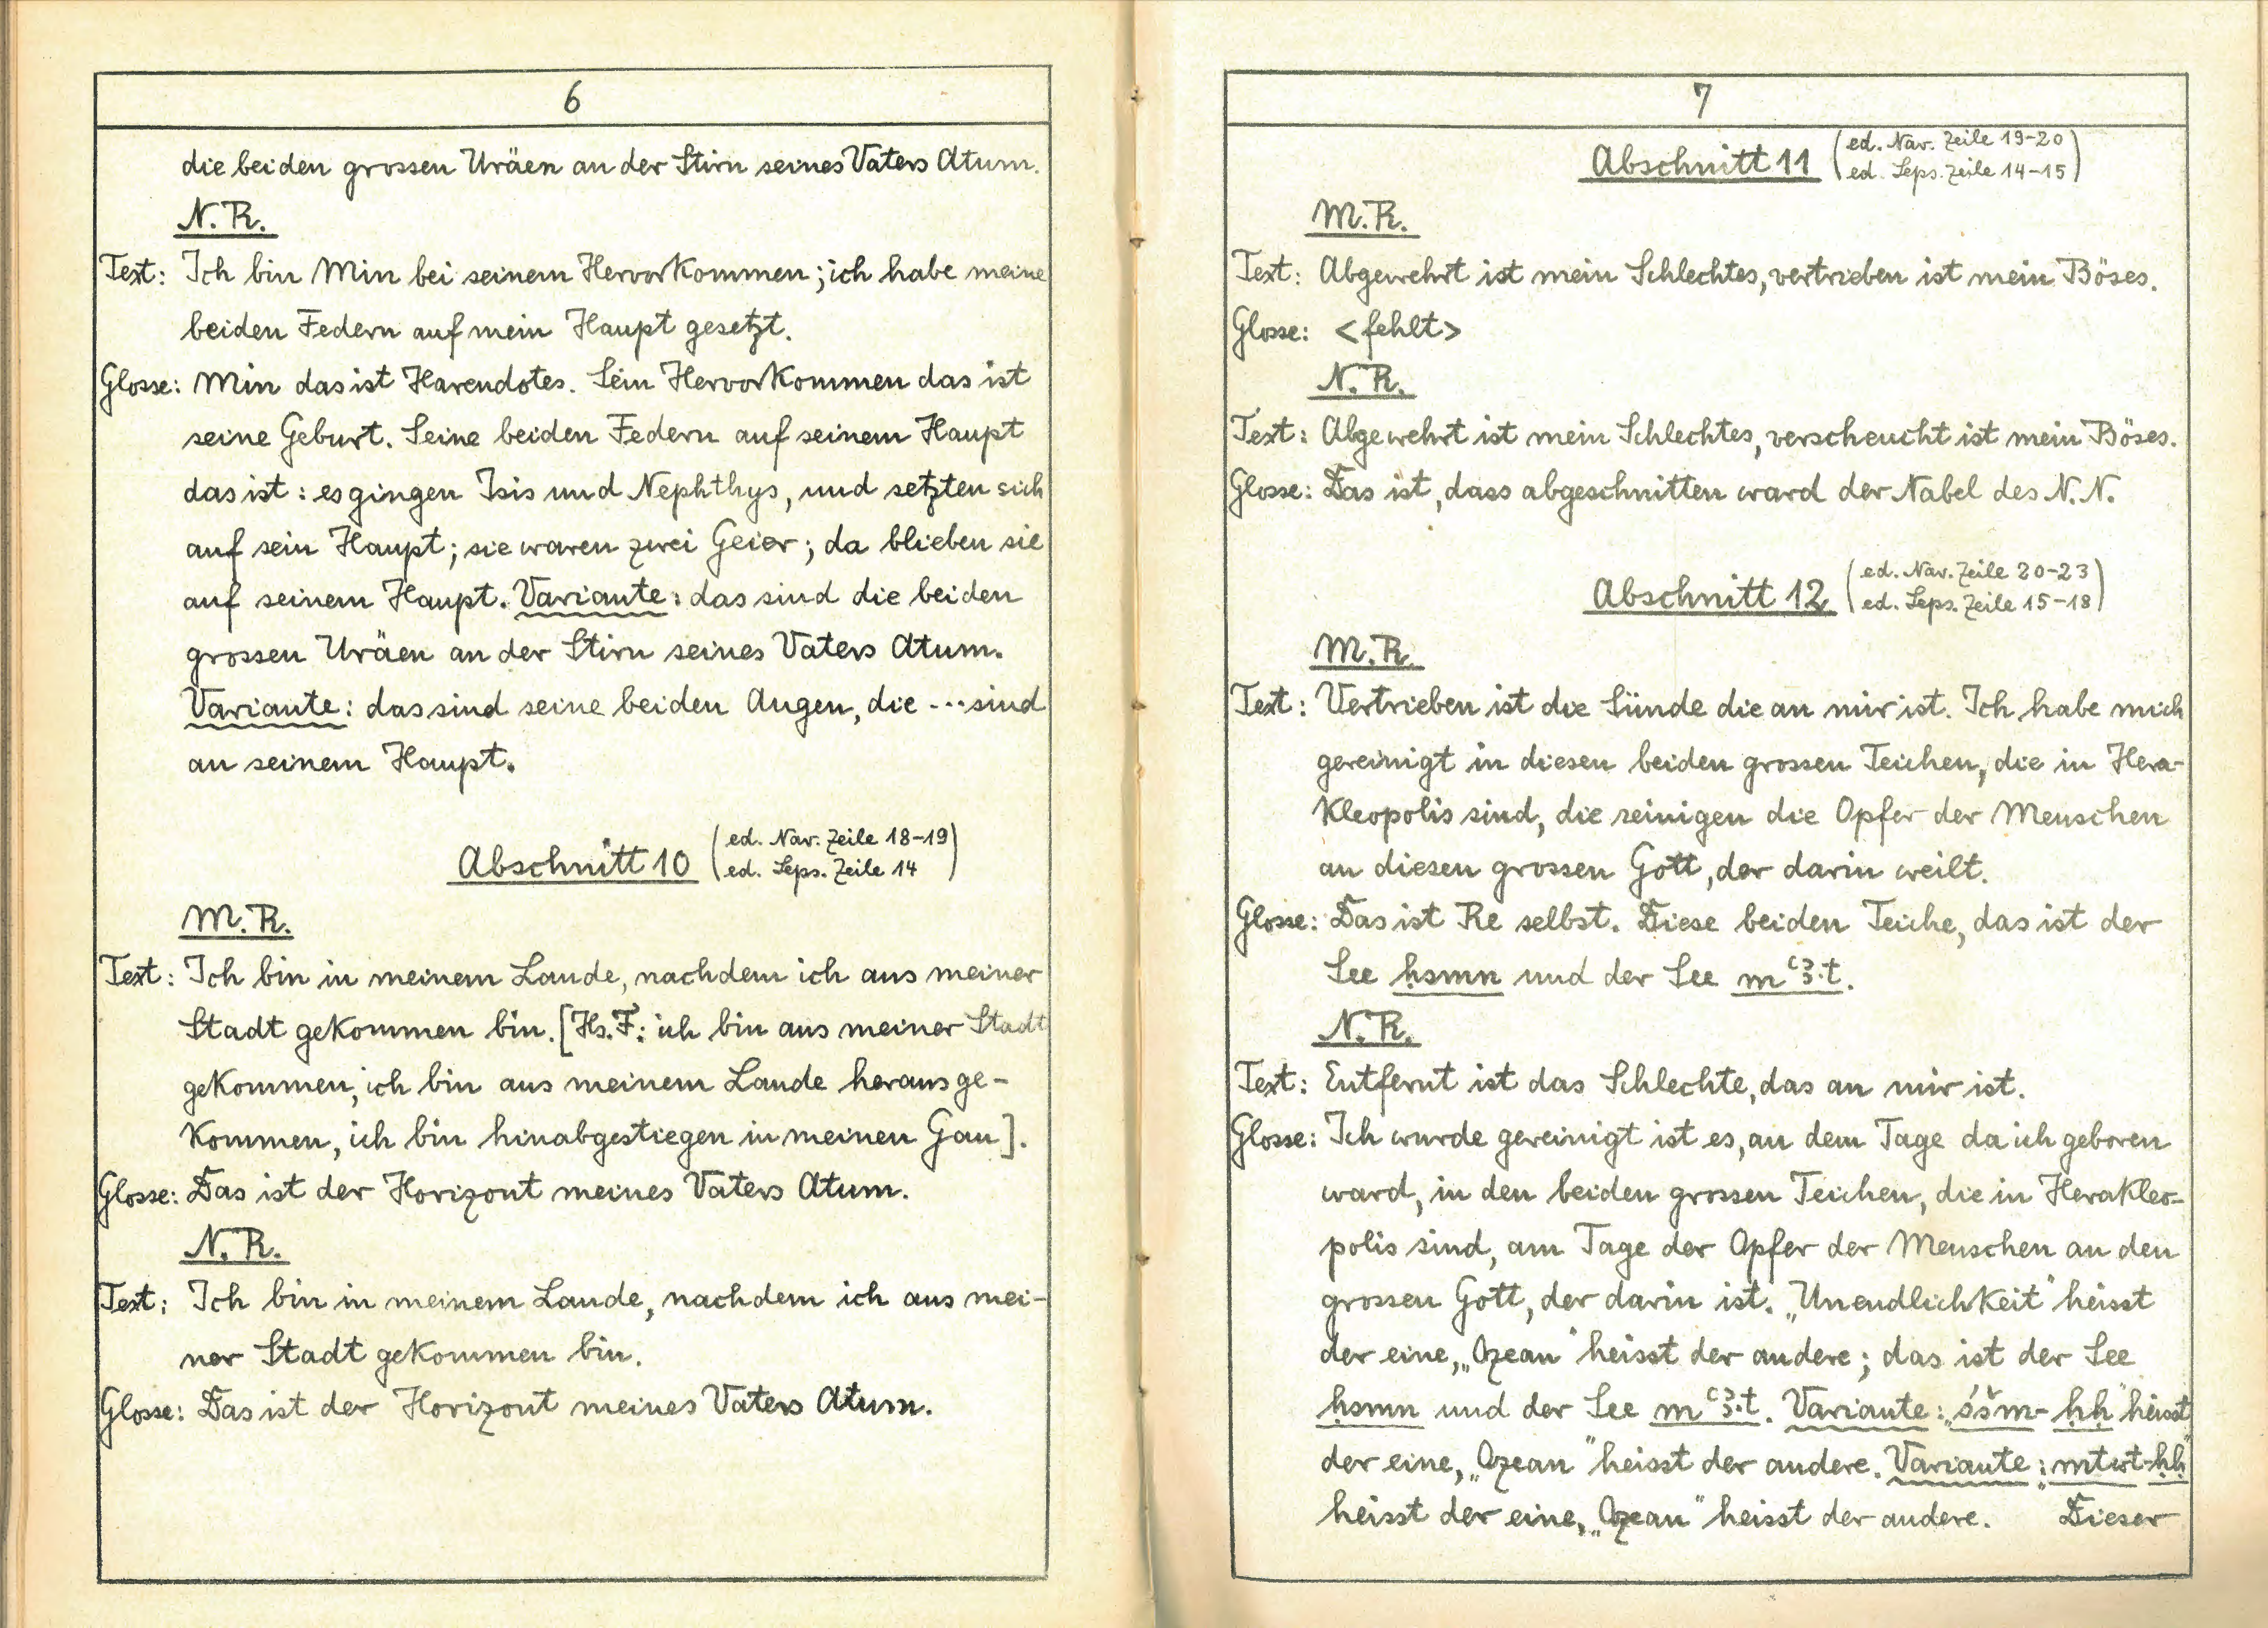 6
die beiden grossen Uräen an der Stirn seines Vaters Atum.
N.R.
Text: Ich bin Min bei seinem Hervorkommen; ich habe meine
beiden Federn auf mein Haupt gesetzt.
Glosse: Min das ist Harendotes. Sein Hervorkommen das ist
seine Geburt. Seine beiden Federn auf seinem Haupt
das ist: es gingen Isis und Nephthys, und setzten sich
auf sein Haupt; sie waren zwei Geier; da blieben sie
auf seinem Haupt. Variante: das sind die beiden
grossen Uräen an der Stirn seines Vaters Atum.
Variante: das sind seine beiden Augen, die ... sind
an seinem Haupt.
Abschnitt 10 (ed. Nav. Zeile 18-19
ed. Leps. Zeile 14)
M.R.
Text: Ich bin in meinem Lande, nachdem ich aus meiner
Stadt gekommen bin. [Hs. F: ich bin aus meiner Stadt
gekommen, ich bin aus meinem Lande herausge-
kommen, ich bin hinabgestiegen in meinen Gau].
Glosse: Das ist der Horizont meines Vaters Atum.
N.R.
Text: Ich bin in meinem Lande, nachdem ich aus mei-
ner Stadt gekommen bin.
Glosse: Das ist der Horizont meines Vaters Atum.
7
Abschnitt 11 (ed. Nav. Zeile 19-20
ed. Leps. Zeile 14-15)
M.R.
Text: Abgewehrt ist mein Schlechtes, vertrieben ist mein Böses.
Glosse: <fehlt>
N.R.
Text: Abgewehrt ist mein Schlechtes, verscheucht ist mein Böses.
Glosse: Das ist, dass abgeschnitten ward der Nabel des N.N.
Abschnitt 12 (ed. Nav. Zeile 20-23
ed. Leps. Zeile 15-18)
M.R.
Text: Vertrieben ist die Sünde die an mir ist. Ich habe mich
gereinigt in diesen beiden grossen Teichen, die in Hera-
kleopolis sind, die reinigen die Opfer der Menschen
an diesen grossen Gott, der darin weilt.
Glosse: Das ist Re selbst. Diese beiden Teiche, das ist der
See ḥsmn und der See mꜥꜣ.t.
N.R.
Text: Entfernt ist das Schlechte, das an mir ist.
Glosse: Ich wurde gereinigt ist es, an dem Tage da ich geboren
ward, in den beiden grossen Teichen, die in Herakleo-
polis sind, am Tage der Opfer der Menschen an den
grossen Gott, der darin ist. „Unendlichkeit" heisst
der eine, „Ozean" heisst der andere; das ist der See
ḥsmn und der See mꜥꜣ.t. Variante: „śšm-ḥḥ" heisst
der eine, „Ozean" heisst der andere. Variante: „mtwt-ḥḥ"
heisst der eine, „Ozean" heisst der andere. Dieser